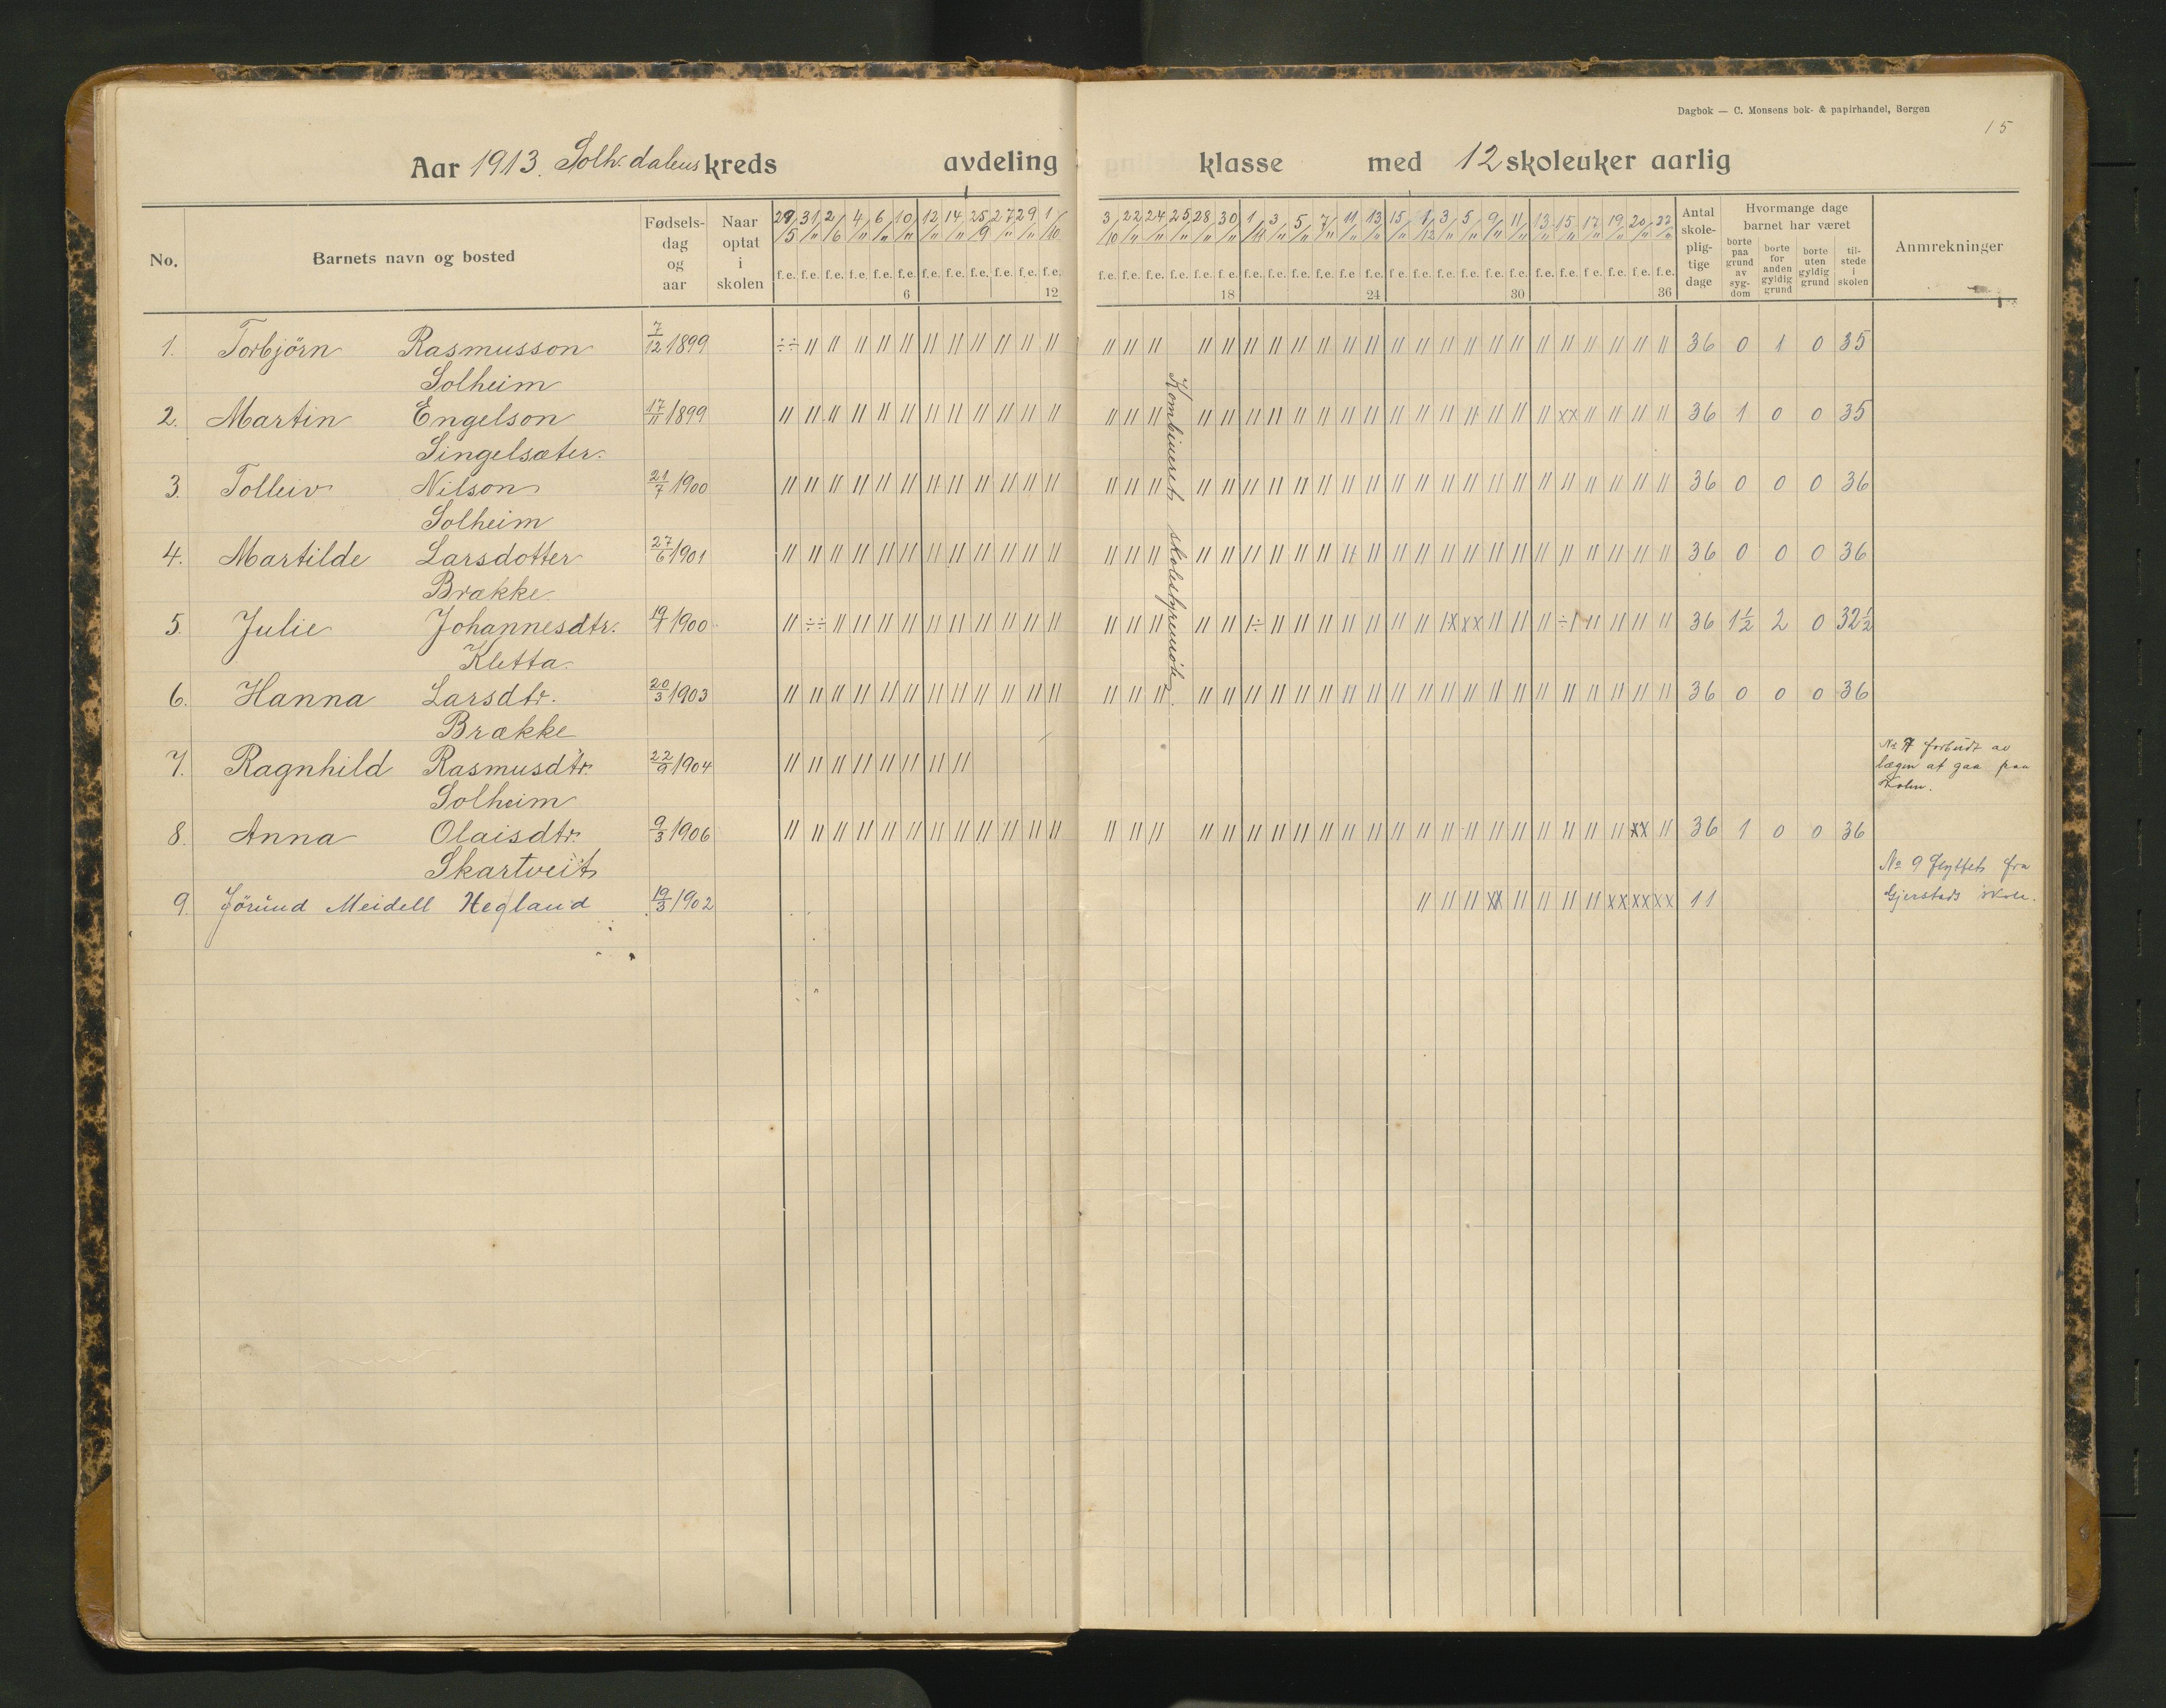 Dagbok — C. Monsens bok- & papirhandel, Bergen
15
Aar 1913. Solh.dalens kreds avdeling klasse med 12 skoleuker aarlig
No.
Barnets navn og bosted
Fødsels-
dag
og
aar
Naar
optat
i
skolen
29/5 31/" 2/6 4/" 6/" 10/" 12/" 14/" 25/9 27/" 29/" 1/10
f.e. f.e. f.e. f.e. f.e. f.e. f.e. f.e. f.e. f.e. f.e. f.e.
6 12
3/10 22/" 24/" 25/" 28/" 30/" 1/11 3/" 5/" 7/" 11/" 13/" 15/" 1/12 3/" 5/" 9/" 11/" 13/" 15/" 17/" 19/" 20/" 22/"
f.e. f.e. f.e. f.e. f.e. f.e. f.e. f.e. f.e. f.e. f.e. f.e. f.e. f.e. f.e. f.e. f.e. f.e. f.e. f.e. f.e. f.e. f.e. f.e.
18 24 30 36
Antal
skole-
plig-
tige
dage
Hvormange dage
barnet har været
borte
paa
grund
av
syg-
dom
borte
for
anden
gyldig
grund
borte
uten
gyldig
grund
til-
stede
i
skolen
Anmrekninger
1. Torbjörn Rasmusson 7/12 1899 36 0 1 0 35
Solheim
2. Martin Engelson 17/11 1899 36 1 0 0 35
Singelsæter.
3. Tolleiv Nilson 21/7 1900 36 0 0 0 36
Solheim
4. Martilde Larsdotter 27/6 1901 36 0 0 0 36
Brække.
5. Julie Johannesdtr. 19/1 1900 36 1½ 2 0 32½
Kletta.
6. Hanna Larsdtr. 20/3 1903 36 0 0 0 36
Brække
7. Ragnhild Rasmusdtr. 22/9 1904
Solheim
8. Anna Olaisdtr. 9/3 1906 36 1 0 0 36
Skartveit
9. Jörund Meidell Hegland 19/3 1902 11
Kombineret skolestyremöte.
No 7 forbudt av
lægen at gaa paa
skolen.
No 9 flyttet fra
Gjerstads skole.